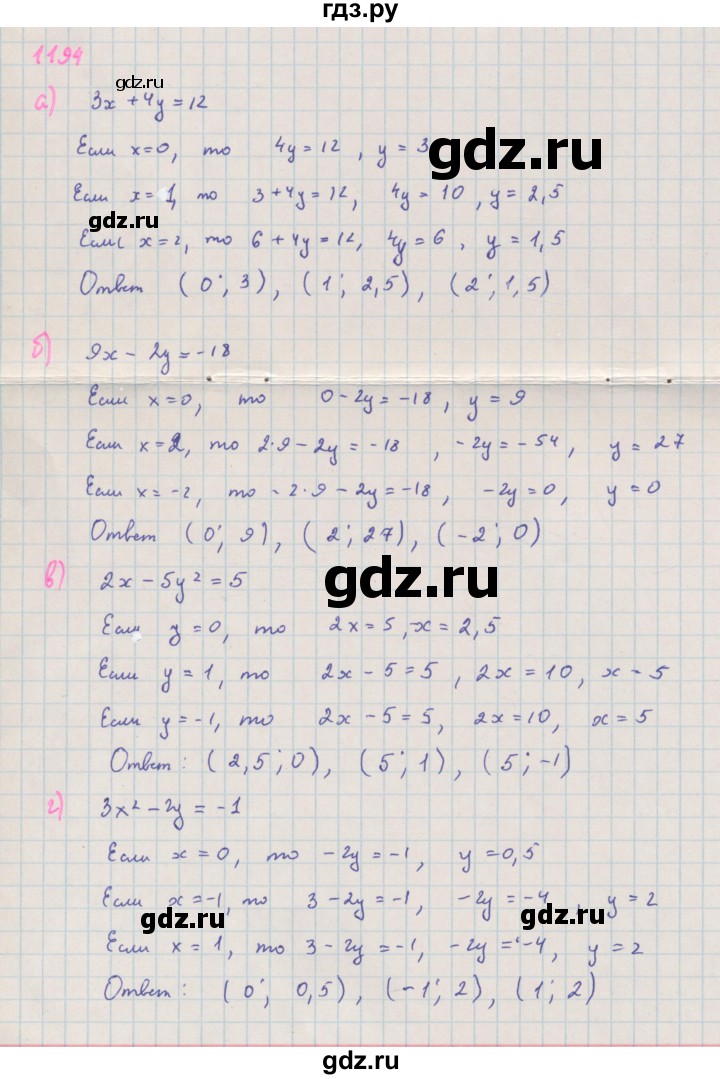 гдз.ру
1194
а) 3x + 4y = 12
Если x=0, то 4y = 12, y = 3
Если x = 1, то 3 + 4y = 12, 4y = 10, y = 2,5
Если x = 2, то 6 + 4y = 12, 4y = 6, y = 1,5
Ответ (0; 3), (1; 2,5), (2; 1,5)
б) 9x - 2y = -18
Если x = 0, то 0 - 2y = -18, y = 9
Если x = 2, то 2·9 - 2y = -18, -2y = -54, y = 27
Если x = -2, то -2·9 - 2y = -18, -2y = 0, y = 0
Ответ (0; 9), (2; 27), (-2; 0)
в) 2x - 5y² = 5
Если y = 0, то 2x = 5, x = 2,5
Если y = 1, то 2x - 5 = 5, 2x = 10, x - 5
Если y = -1, то 2x - 5 = 5, 2x = 10, x = 5
Ответ: (2,5; 0), (5; 1), (5; -1)
г) 3x² - 2y = -1
Если x = 0, то -2y = -1, y = 0,5
Если x = -1, то 3 - 2y = -1, -2y = -4, y = 2
Если x = 1, то 3 - 2y = -1, -2y = -4, y = 2
Ответ: (0; 0,5), (-1; 2), (1; 2)
gdz.ru
gdz.ru
gdz.ru
gdz.ru
gdz.ru
gdz.ru
gdz.ru